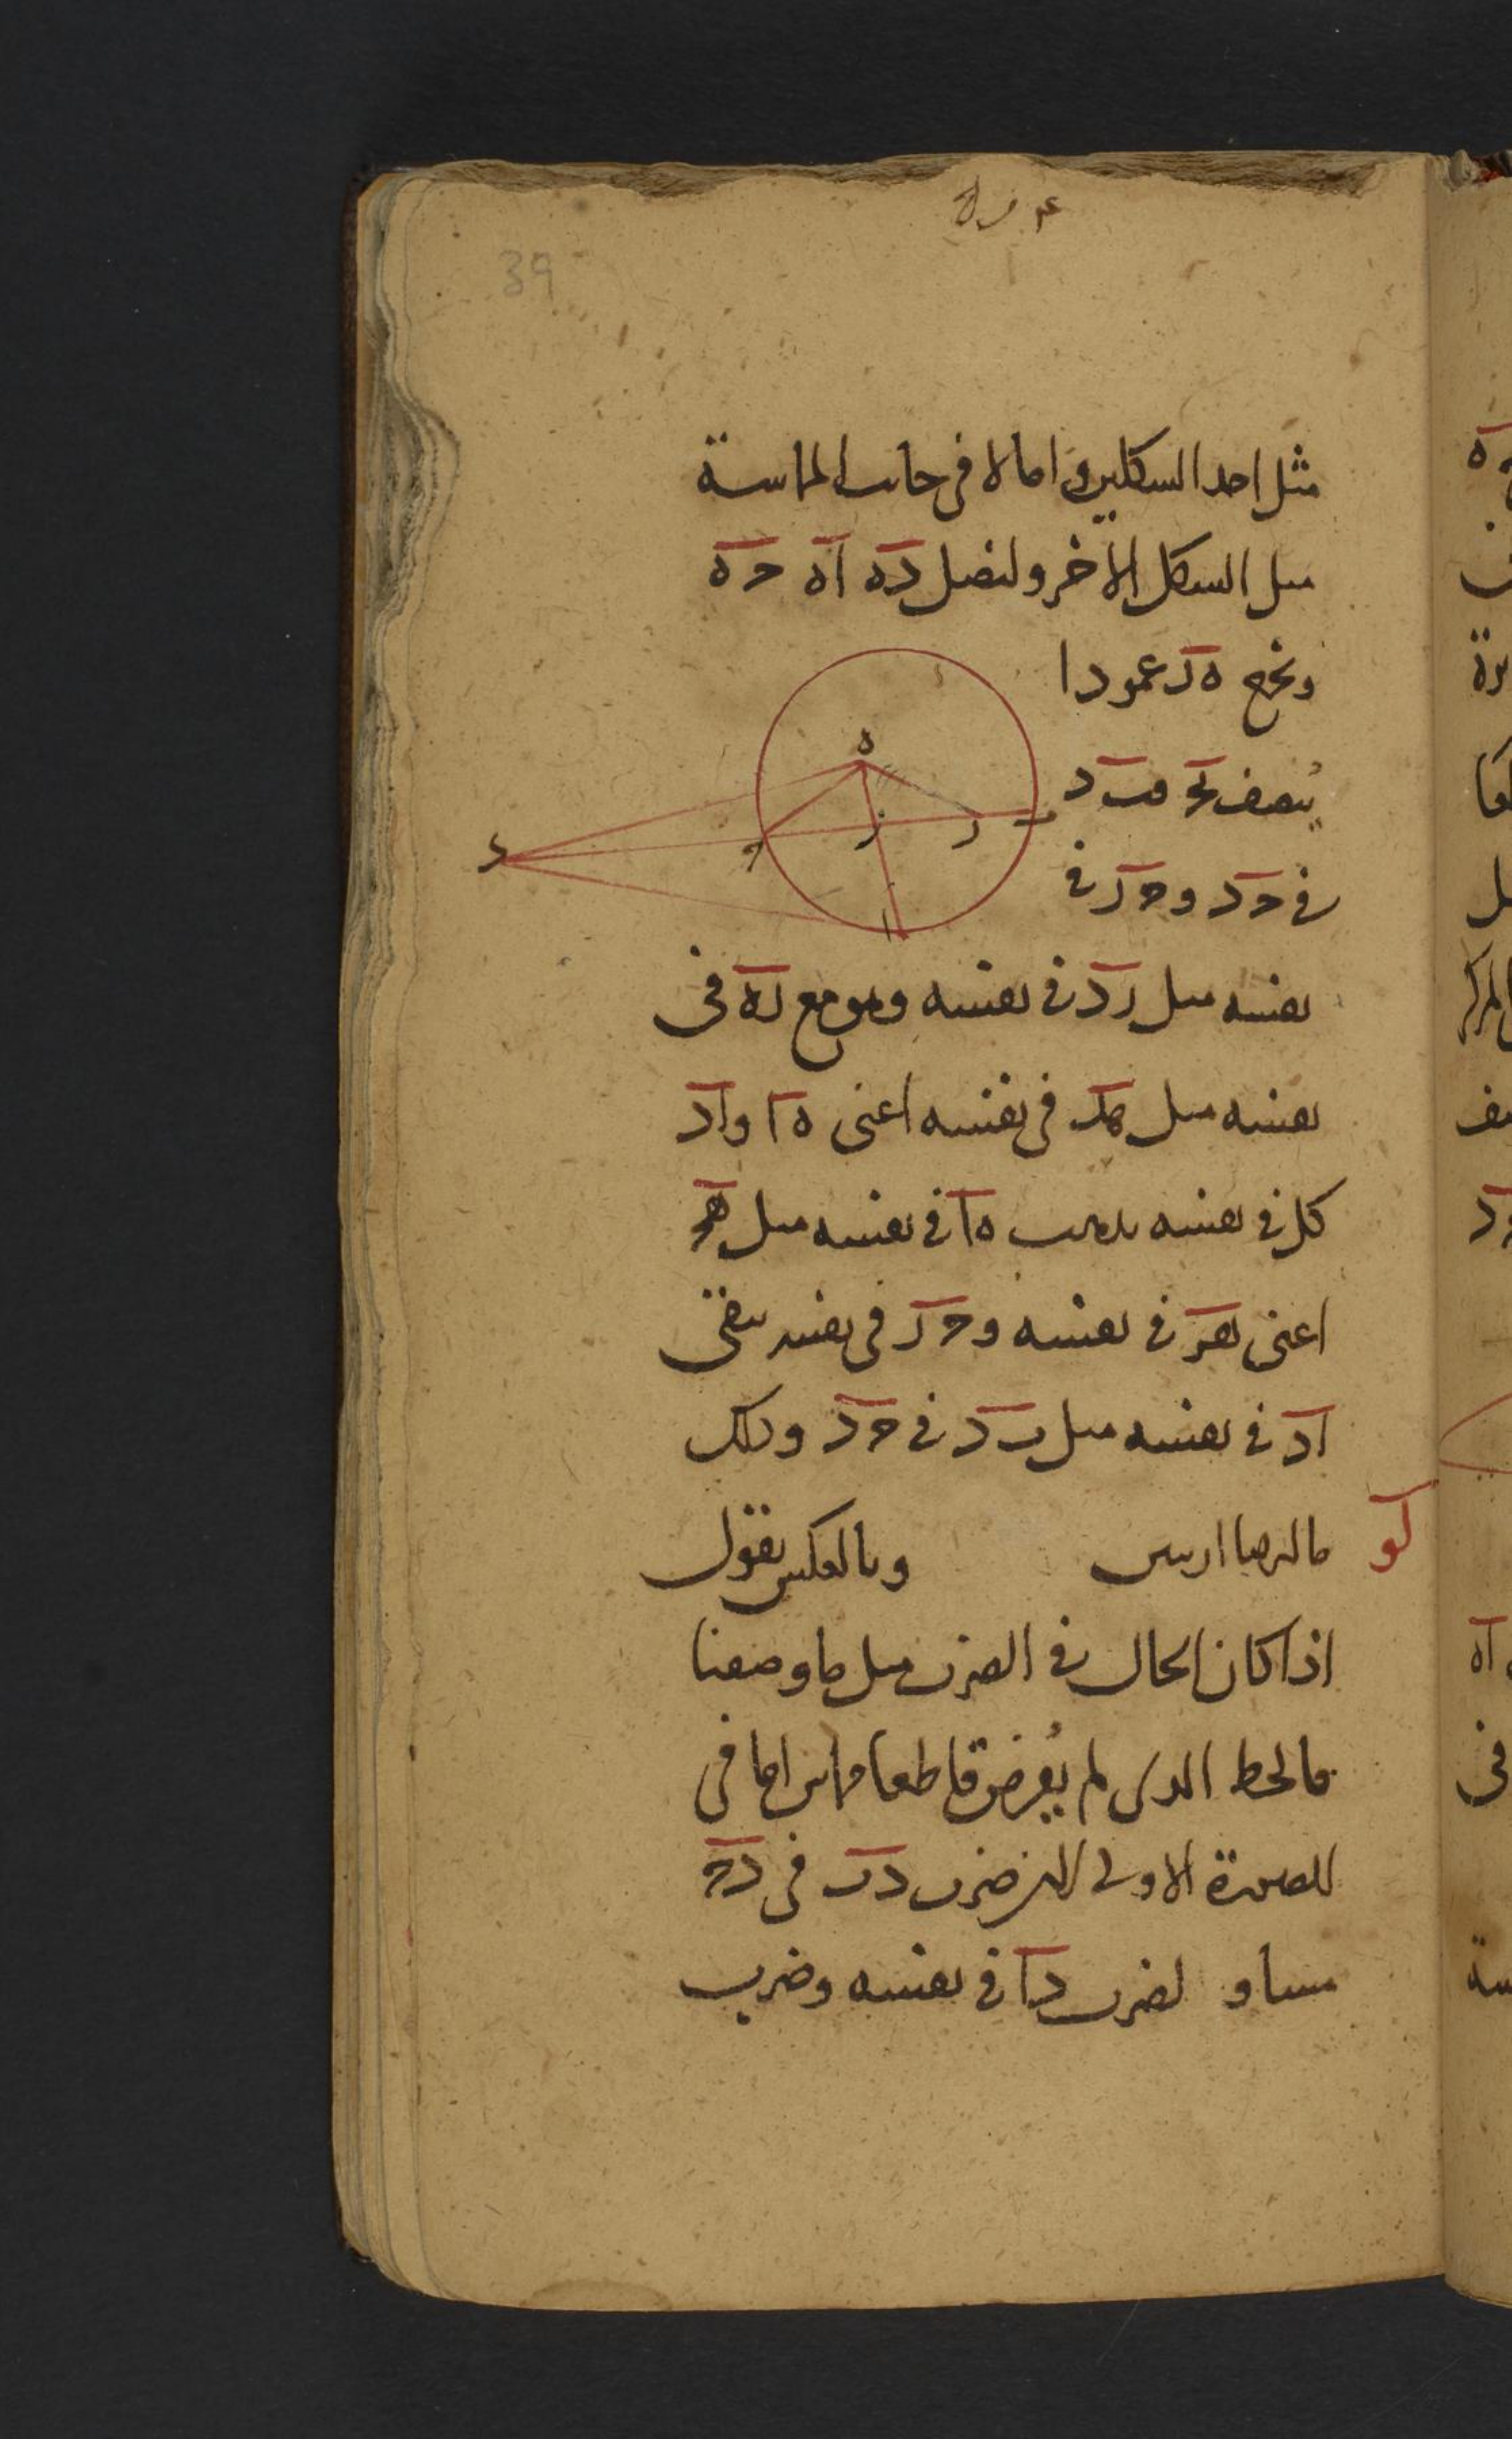 39
مثل احد الشكلين واما لا فى جانب المماسة
مثل الشكل الاخر ولنصل ده اه حه
ونخرج ه‍ز عمودا
ينصف بح فب د
فى حد و حز فى
نفسه مثل زد فى نفسه وهو مع زه فى
نفسه مثل هد فى نفسه اعنى ه‍ا واد
كل فى نفسه يذهب ه‍ا فى نفسه مثل هح
اعنى هز فى نفسه وحز فى نفسه يبقى
اد فى نفسه مثل بد فى حد وذلك
ما اردنا
لو
وبالعكس نقول
اذا كان الحال فى الضرب مثل ما وصفنا
فالخط الذى لم يُفرض قاطعا مماس اما فى
الصورة الاولى ضرب دب فى دح
مساو لضرب دا فى نفسه وضرب
ه
ز
ح
د
ا
ب